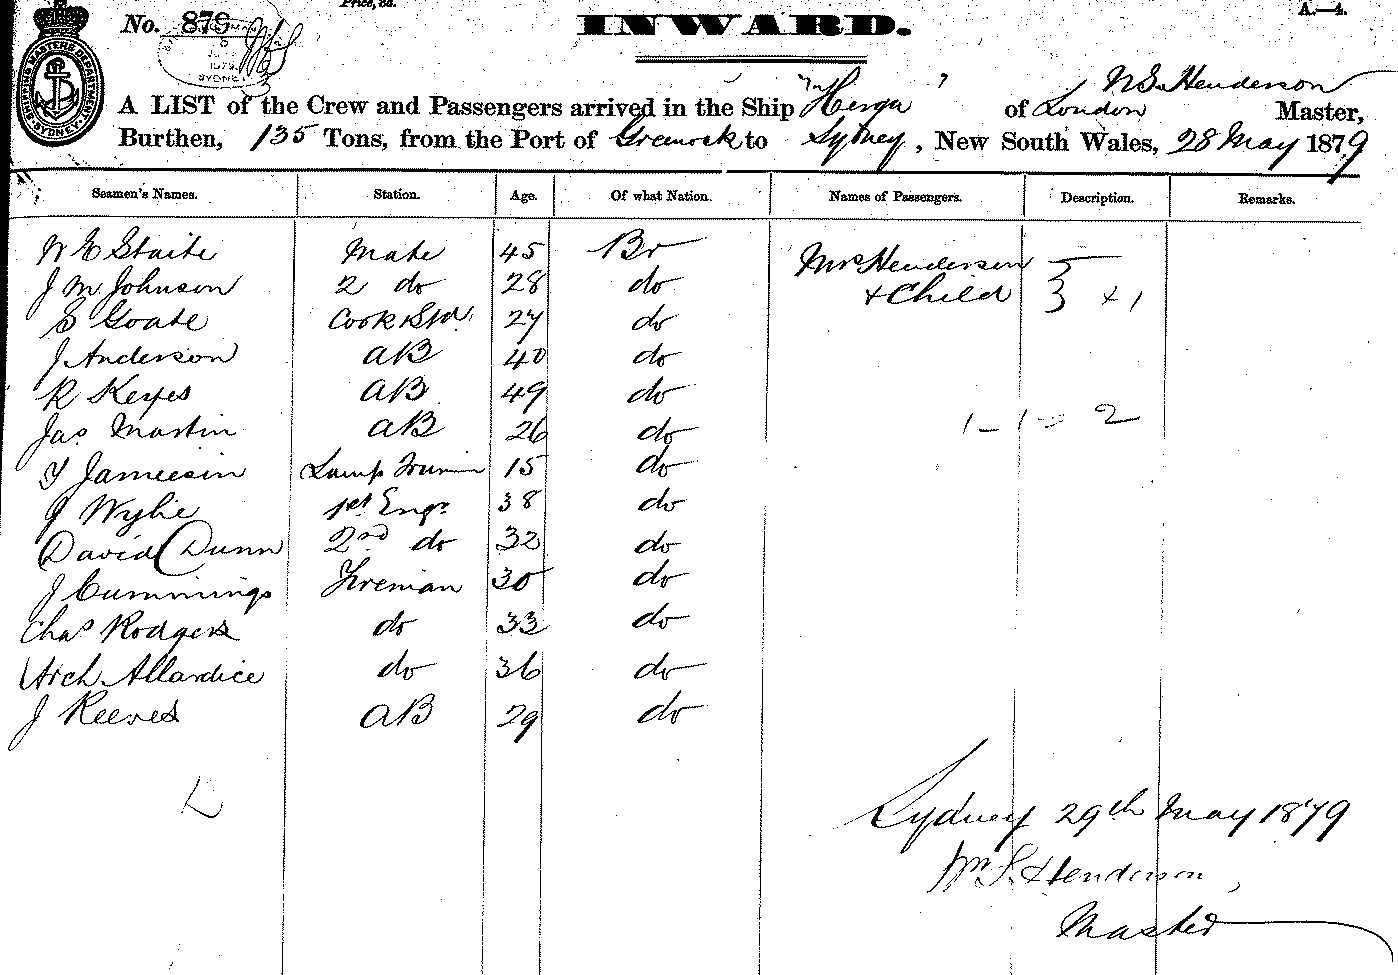 Price, 3d.
A.—4.
No. 879
INWARD.
SHIPPING MASTERS DEPARTMENT SYDNEY
1879
SYDNEY
A LIST of the Crew and Passengers arrived in the Ship "Herga" of London W S Henderson Master,
Burthen, 135 Tons, from the Port of Greenock to Sydney, New South Wales, 28 May 1879
Seamen's Names. Station. Age. Of what Nation. Names of Passengers. Description. Remarks.
W E Staite Mate 45 Br Mrs Henderson
J M Johnson 2 do 28 do + Child } + 1
S Goate Cook & Std. 27 do
J Anderson AB 40 do
R Keyes AB 49 do
Jas Martin AB 26 do 1 - 1 = 2
Jameesin Lamp Trimmr 15 do
J Wylie 1st Engr 38 do
David Dunn 2nd do 32 do
J Cummings Fireman 30 do
Chas Rodgers do 33 do
Arch Allardice do 36 do
J Reeves AB 29 do
Sydney 29th May 1879
Wm S. Henderson,
Master